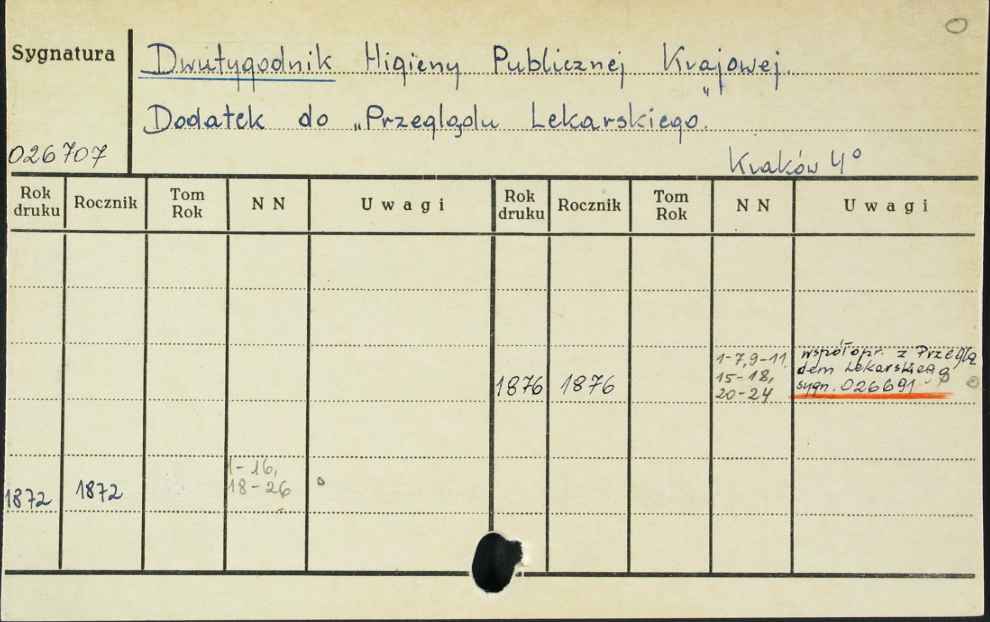 Sygnatura
Dwutygodnik Higieny Publicznej Krajowej.
Dodatek do „Przeglądu Lekarskiego".
026707
Kraków 4°
Rok druku Rocznik Tom Rok NN Uwagi Rok druku Rocznik Tom Rok NN Uwagi
1876 1876 1-7, 9-11, 15-18, 20-24 współopr. z Przeglą
dem Lekarskiego
sygn. 026691
1872 1872 1-16, 18-26